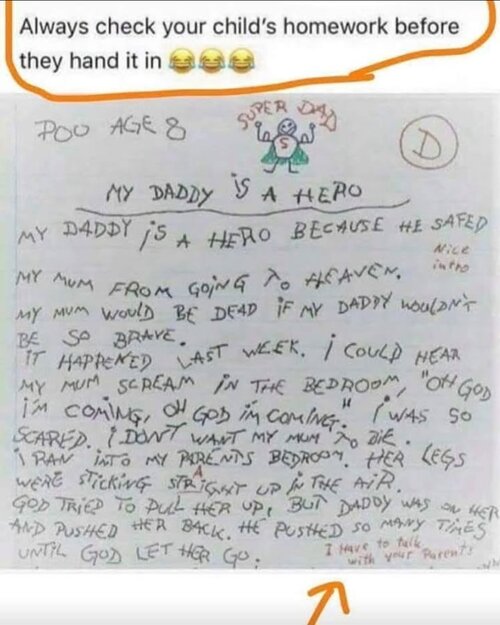 Always check your child's homework before
they hand it in 😂😂😂
POO AGE 8
SUPER DAD
S
D
MY DADDY iS A HERO
MY DADDY iS A HERO BECAUSE HE SAFED
Nice
intro
MY MUM FROM GOiNG TO HEAVEN.
MY MUM WOULD BE DEAD iF MY DADDY WOULDN'T
BE SO BRAVE.
iT HAPPENED LAST WEEK. i COULD HEAR
MY MUM SCREAM iN THE BEDROOM, "OH GOD
i'M COMiNG, OH GOD iM COMiNG." i WAS SO
SCARED. i DON'T WANT MY MUM TO DiE.
i RAN iNTO MY PARENTS BEDROOM. HER LEGS
WERE STiCKiNG STRAiGHT UP iN THE AiR.
GOD TRiED TO PULL HER UP, BUT DADDY WAS ON HER
AND PUSHED HER BACK. HE PUSHED SO MANY TiMES
UNTiL GOD LET HER GO.
I Have to talk
with your Parents